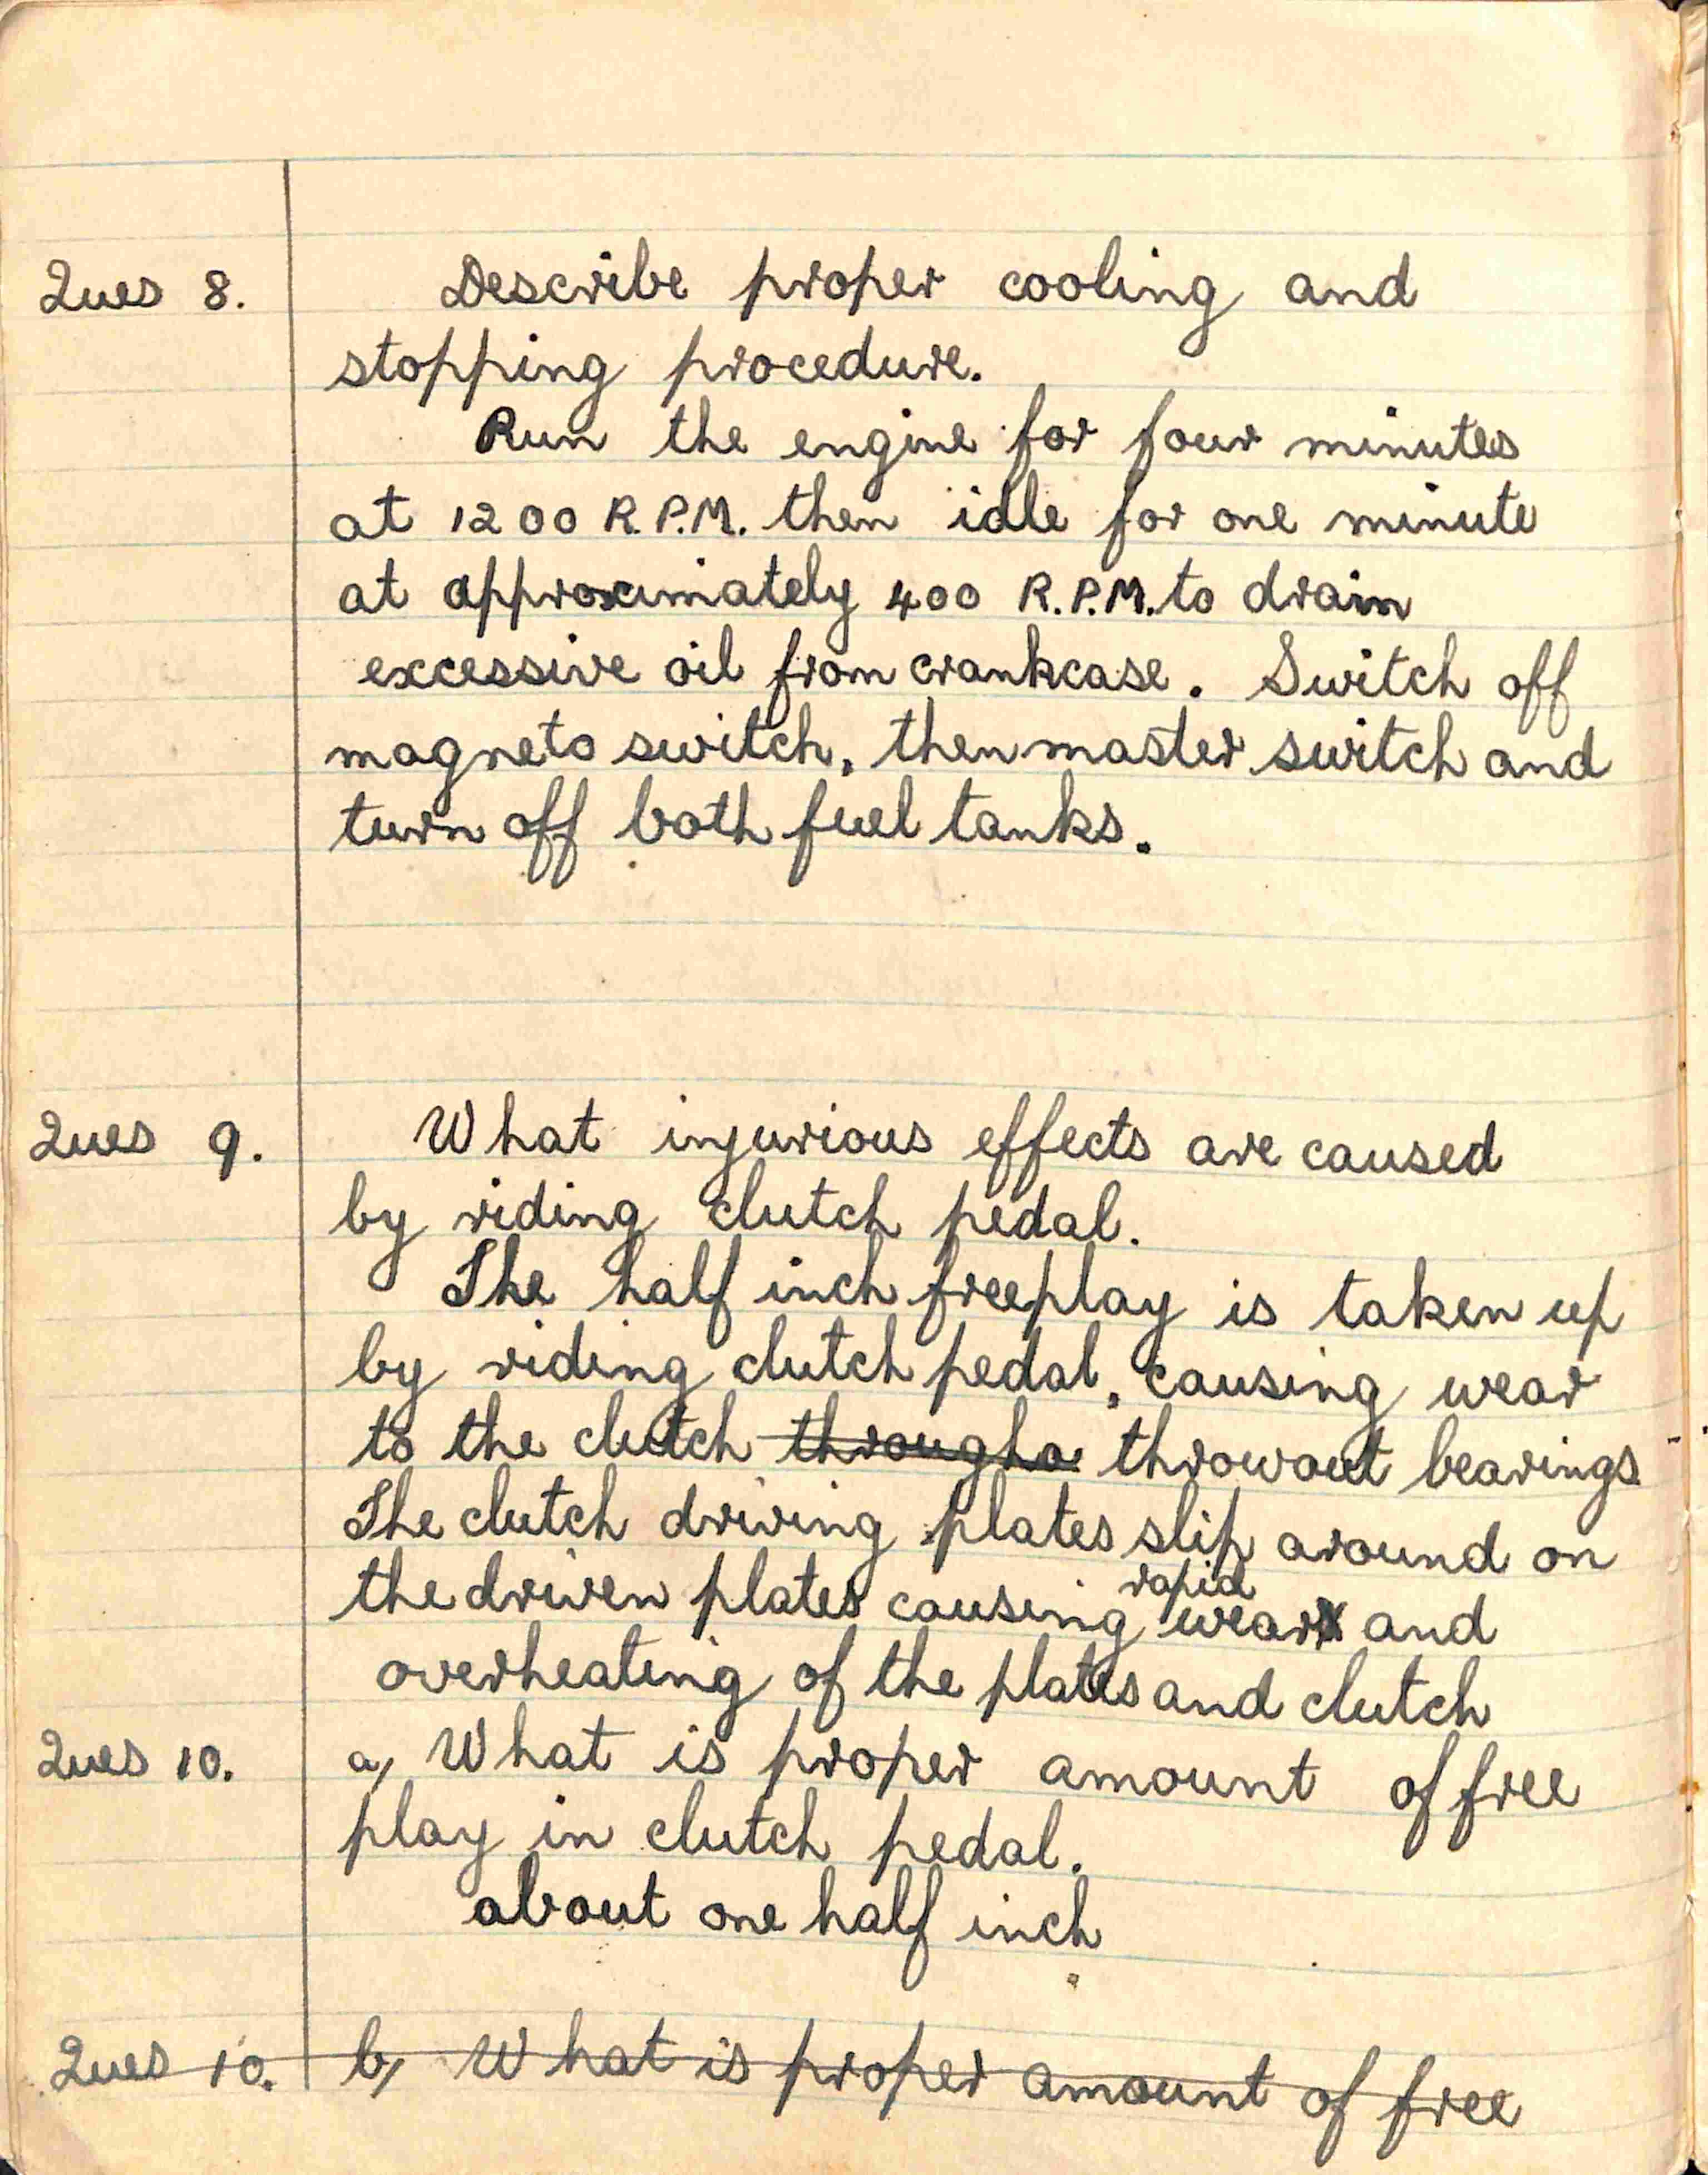 Ques 8. Describe proper cooling and
stopping procedure.
Run the engine for four minutes
at 1200 R.P.M. then idle for one minute
at approximately 400 R.P.M. to drain
excessive oil from crankcase. Switch off
magneto switch, then master switch and
turn off both fuel tanks.
Ques 9. What injurious effects are caused
by riding clutch pedal.
The half inch freeplay is taken up
by riding clutch pedal, causing wear
to the clutch througho throwout bearings
The clutch driving plates slip around on
the driven plates causing rapid wear and
overheating of the plates and clutch
Ques 10. a, What is proper amount of free
play in clutch pedal.
about one half inch
Ques 10. b, What is proper amount of free